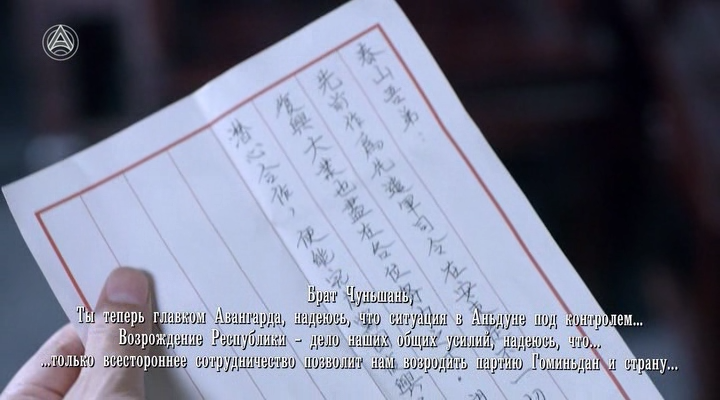 春山吾弟：
先前作爲先遣軍司令在安
復興大業也盡在各位
潜心合作，便能完
Брат Чуньшань,
Ты теперь главком Авангарда, надеюсь, что ситуация в Аньдуне под контролем...
Возрождение Республики - дело наших общих усилий, надеюсь, что...
...только всестороннее сотрудничество позволит нам возродить партию Гоминьдан и страну...